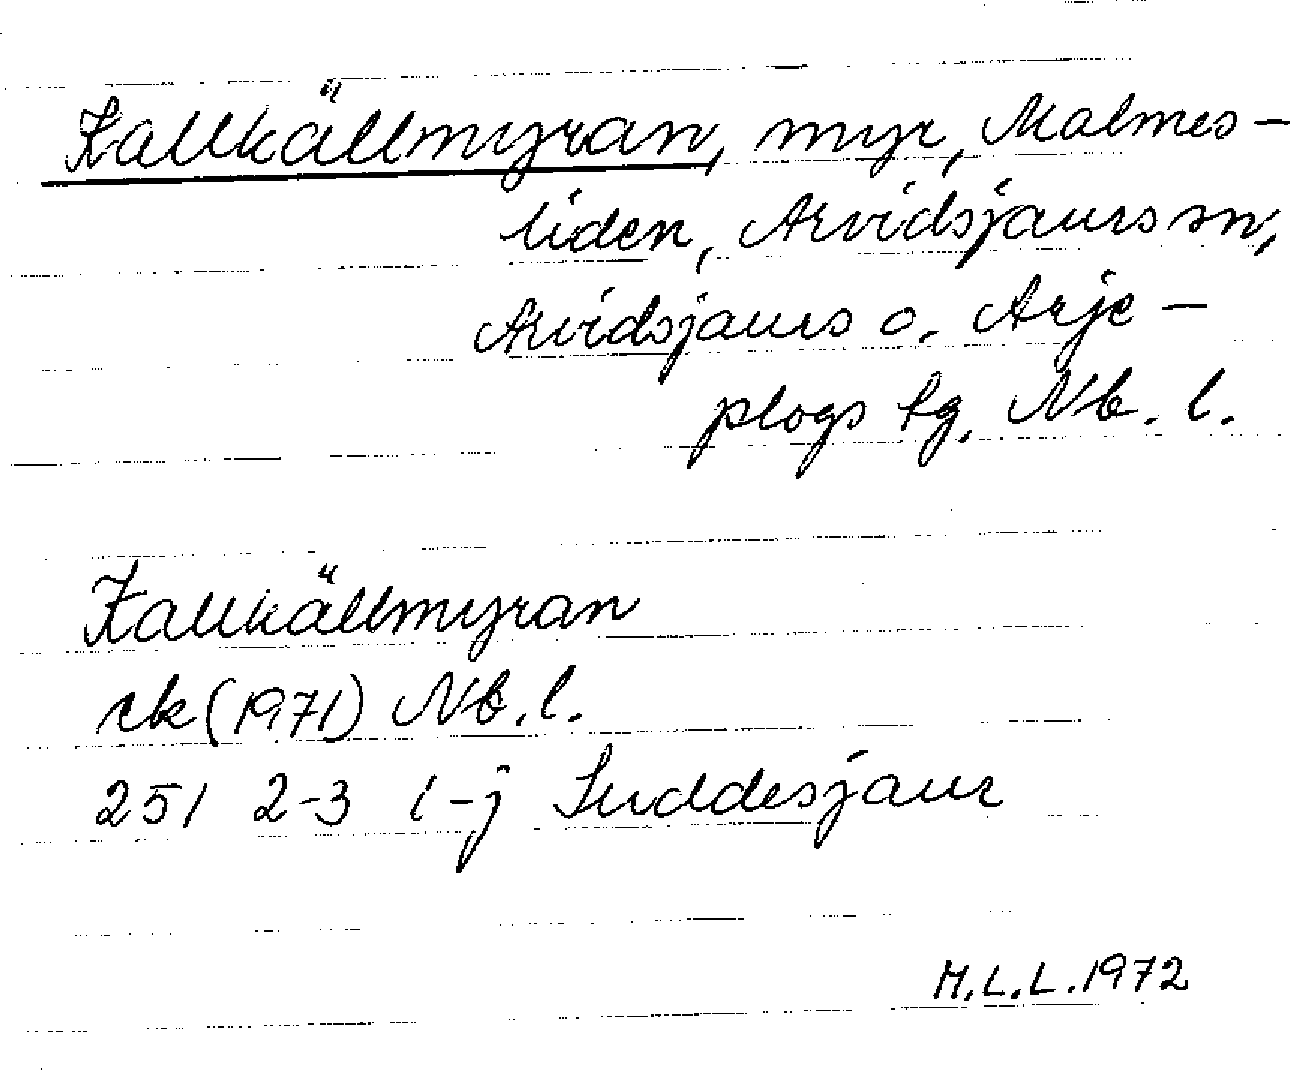 Kallkällmyran, myr, Malmes-
liden, Arvidsjaurs sn,
Arvidsjaurs o. Arje-
plogs tg, Nb. l.
Kallkällmyran
rk (1971) Nb. l.
251 2-3 i-j Suddesjaur
M.L.L. 1972